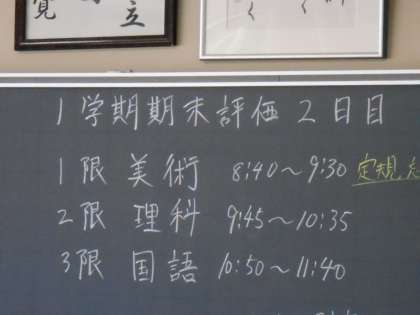 覚 立
1学期期末評価 2日目
1限 美術 8:40～9:30 定規
2限 理科 9:45～10:35
3限 国語 10:50～11:40